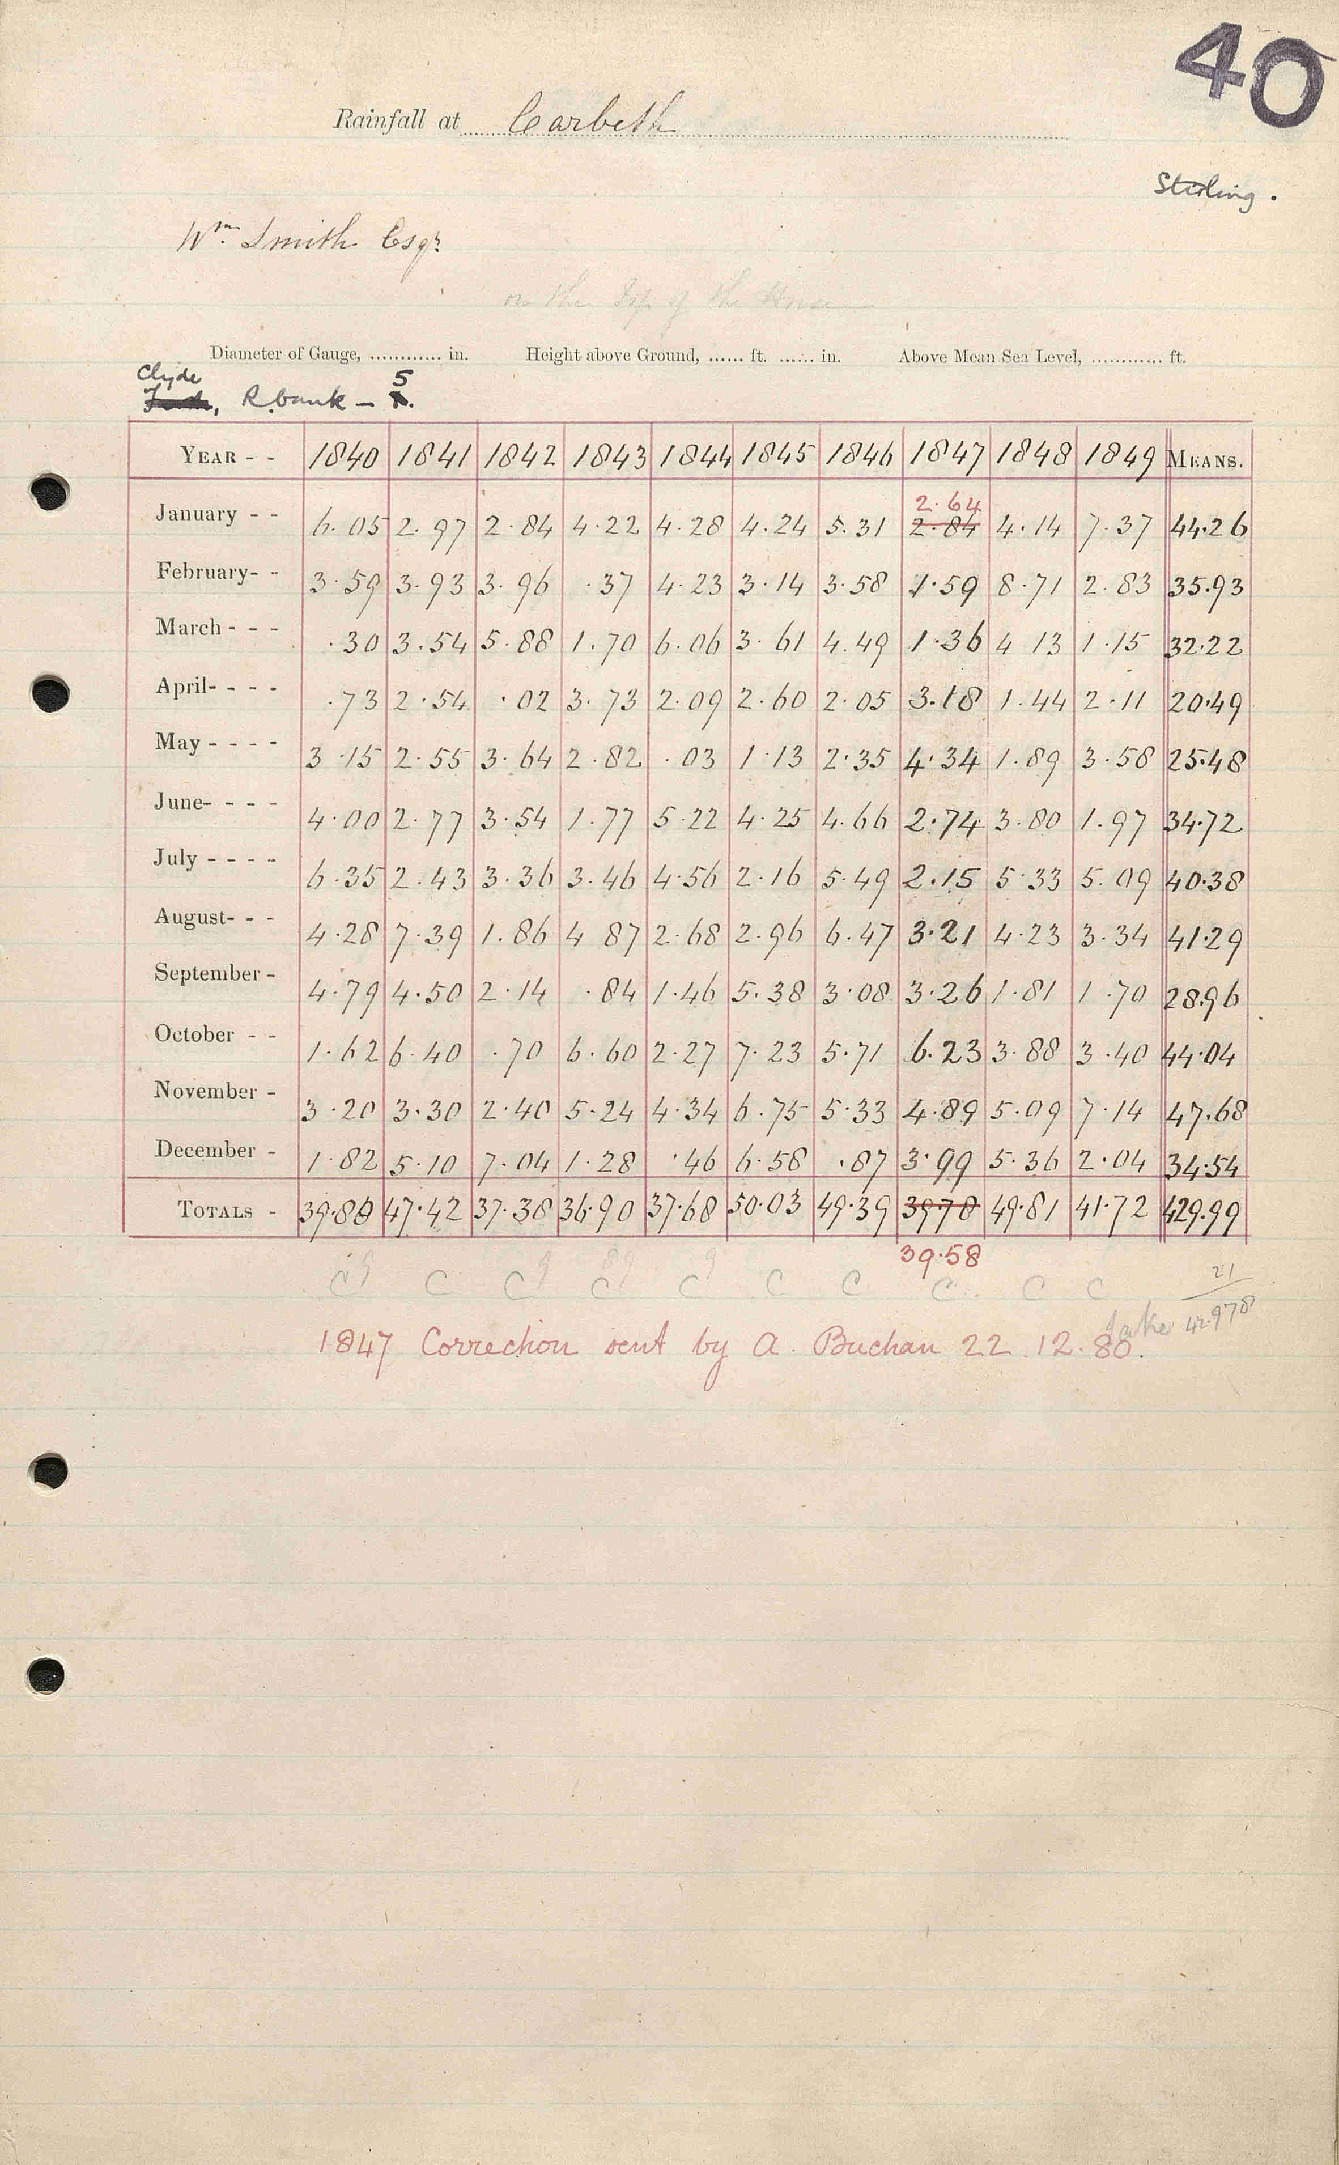 40
Rainfall at Carbeth
Stirling.
Wm. Smith Esqr.
on the top of the House
Diameter of Gauge, ............ in. Height above Ground, ...... ft. ...... in. Above Mean Sea Level, ............ ft.
Clyde
R. bank – 5.
YEAR - - 1840 1841 1842 1843 1844 1845 1846 1847 1848 1849 MEANS.
2.64
January - - 6.05 2.97 2.84 4.22 4.28 4.24 5.31 2.84 4.14 7.37 44.26
February- - 3.59 3.93 3.96 .37 4.23 3.14 3.58 1.59 8.71 2.83 35.93
March - - - .30 3.54 5.88 1.70 6.06 3.61 4.49 1.36 4 13 1.15 32.22
April- - - - .73 2.54 .02 3.73 2.09 2.60 2.05 3.18 1.44 2.11 20.49
May - - - - 3.15 2.55 3.64 2.82 .03 1.13 2.35 4.34 1.89 3.58 25.48
June- - - - 4.00 2.77 3.54 1.77 5.22 4.25 4.66 2.74 3.80 1.97 34.72
July - - - - 6.35 2.43 3.36 3.46 4.56 2.16 5.49 2.15 5.33 5.09 40.38
August- - - 4.28 7.39 1.86 4 87 2.68 2.96 6.47 3.21 4.23 3.34 41.29
September - 4.79 4.50 2.14 .84 1.46 5.38 3.08 3.26 1.81 1.70 28.96
October - - 1.62 6.40 .70 6.60 2.27 7.23 5.71 6.23 3.88 3.40 44.04
November - 3.20 3.30 2.40 5.24 4.34 6.75 5.33 4.89 5.09 7.14 47.68
December - 1.82 5.10 7.04 1.28 .46 6.58 .87 3.99 5.36 2.04 34.54
TOTALS - 39.88 47.42 37.38 36.90 37.68 50.03 49.39 39.78 49.81 41.72 429.99
39.58
C C C C C C C C C C
21
42.978
1847 Correction sent by A. Buchan 22.12.80.